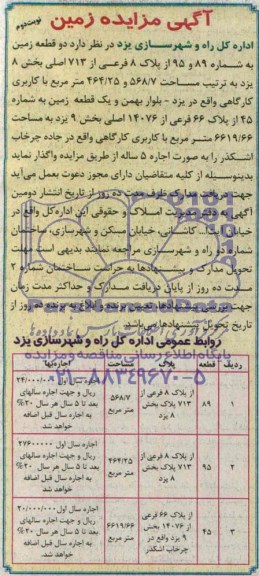 آگهی مزایده زمین
نوبت دوم
اداره کل راه و شهرسازی یزد در نظر دارد دو قطعه زمین
به شماره ۸۹ و ۹۵ از پلاک ۸ فرعی از ۷۱۳ اصلی بخش ۸
یزد به ترتیب مساحت ۵۶۸/۷ و ۴۶۴/۲۵ متر مربع با کاربری
کارگاهی واقع در یزد - بلوار بهمن و یک قطعه زمین به شماره
۴۵ از پلاک ۶۶ فرعی از ۱۴۰۷۶ اصلی بخش ۹ یزد به مساحت
۶۶۱۹/۶۶ متر مربع با کاربری کارگاهی واقع در جاده چرخاب
اشکذر را به صورت اجاره ۵ ساله از طریق مزایده واگذار نماید
بدینوسیله از کلیه متقاضیان دارای مجوز دعوت بعمل می آید
جهت دریافت مدارک ظرف مدت ده روز از تاریخ انتشار دومین
آگهی به دفتر مدیریت املاک و حقوقی این اداره کل واقع در
خیابان آیت ا... کاشانی، خیابان مسکن و شهرسازی، ساختمان
شماره دو راه و شهرسازی مراجعه نمایند بدیهی است مهلت
تحویل مدارک و پیشنهادها به حراست ساختمان شماره ۲
مدت ده روز از پایان دریافت مدارک و حداکثر مدت زمان
جهت بررسی پیشنهادها، تعیین برنده و ابلاغ به برنده ده روز از
تاریخ تحویل پیشنهادها می باشد.
روابط عمومی اداره کل راه و شهرسازی یزد
پایگاه اطلاع رسانی مناقصه و مزایده
۰۲۱-۸۸۳۴۹۶۷۰-۵
ردیف قطعه پلاک مساحت اجاره بها
۱ ۸۹ از پلاک ۸ فرعی از ۷۱۳ پلاک بخش ۸ یزد ۵۶۸/۷ متر مربع اجاره سال اول ۲۴/۰۰۰/۰۰۰ ریال و جهت اجاره سالهای بعد تا ۵ سال هر سال ۲۰٪ به اجاره سال قبل اضافه خواهد شد
۲ ۹۵ از پلاک ۸ فرعی از ۷۱۳ پلاک بخش ۸ یزد ۴۶۴/۲۵ متر مربع اجاره سال اول ۲۷۶۰۰۰۰۰ ریال و جهت اجاره سالهای بعد تا ۵ سال هر سال ۲۰٪ به اجاره سال قبل اضافه خواهد شد
۳ ۴۵ از پلاک ۶۶ فرعی از ۱۴۰۷۶ بخش ۹ یزد واقع در چرخاب اشکذر ۶۶۱۹/۶۶ متر مربع اجاره سال اول ۲۰/۰۰۰/۰۰۰ ریال و جهت اجاره سالهای بعد تا ۵ سال هر سال ۲۰٪ به اجاره سال قبل اضافه خواهد شد.